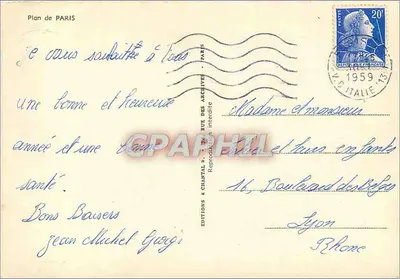 Plan de PARIS
Je vous souhaite à tous
une bonne et heureuse
année et une bonne
santé.
Bons Baisers
Jean Michel
EDITIONS " CHANTAL " RUE DES ARCHIVES - PARIS
Reproduction interdite
20F
1959
ITALIE 13
Madame et monsieur
et leurs enfants
16, Boulevard des Belges
Lyon
Rhone